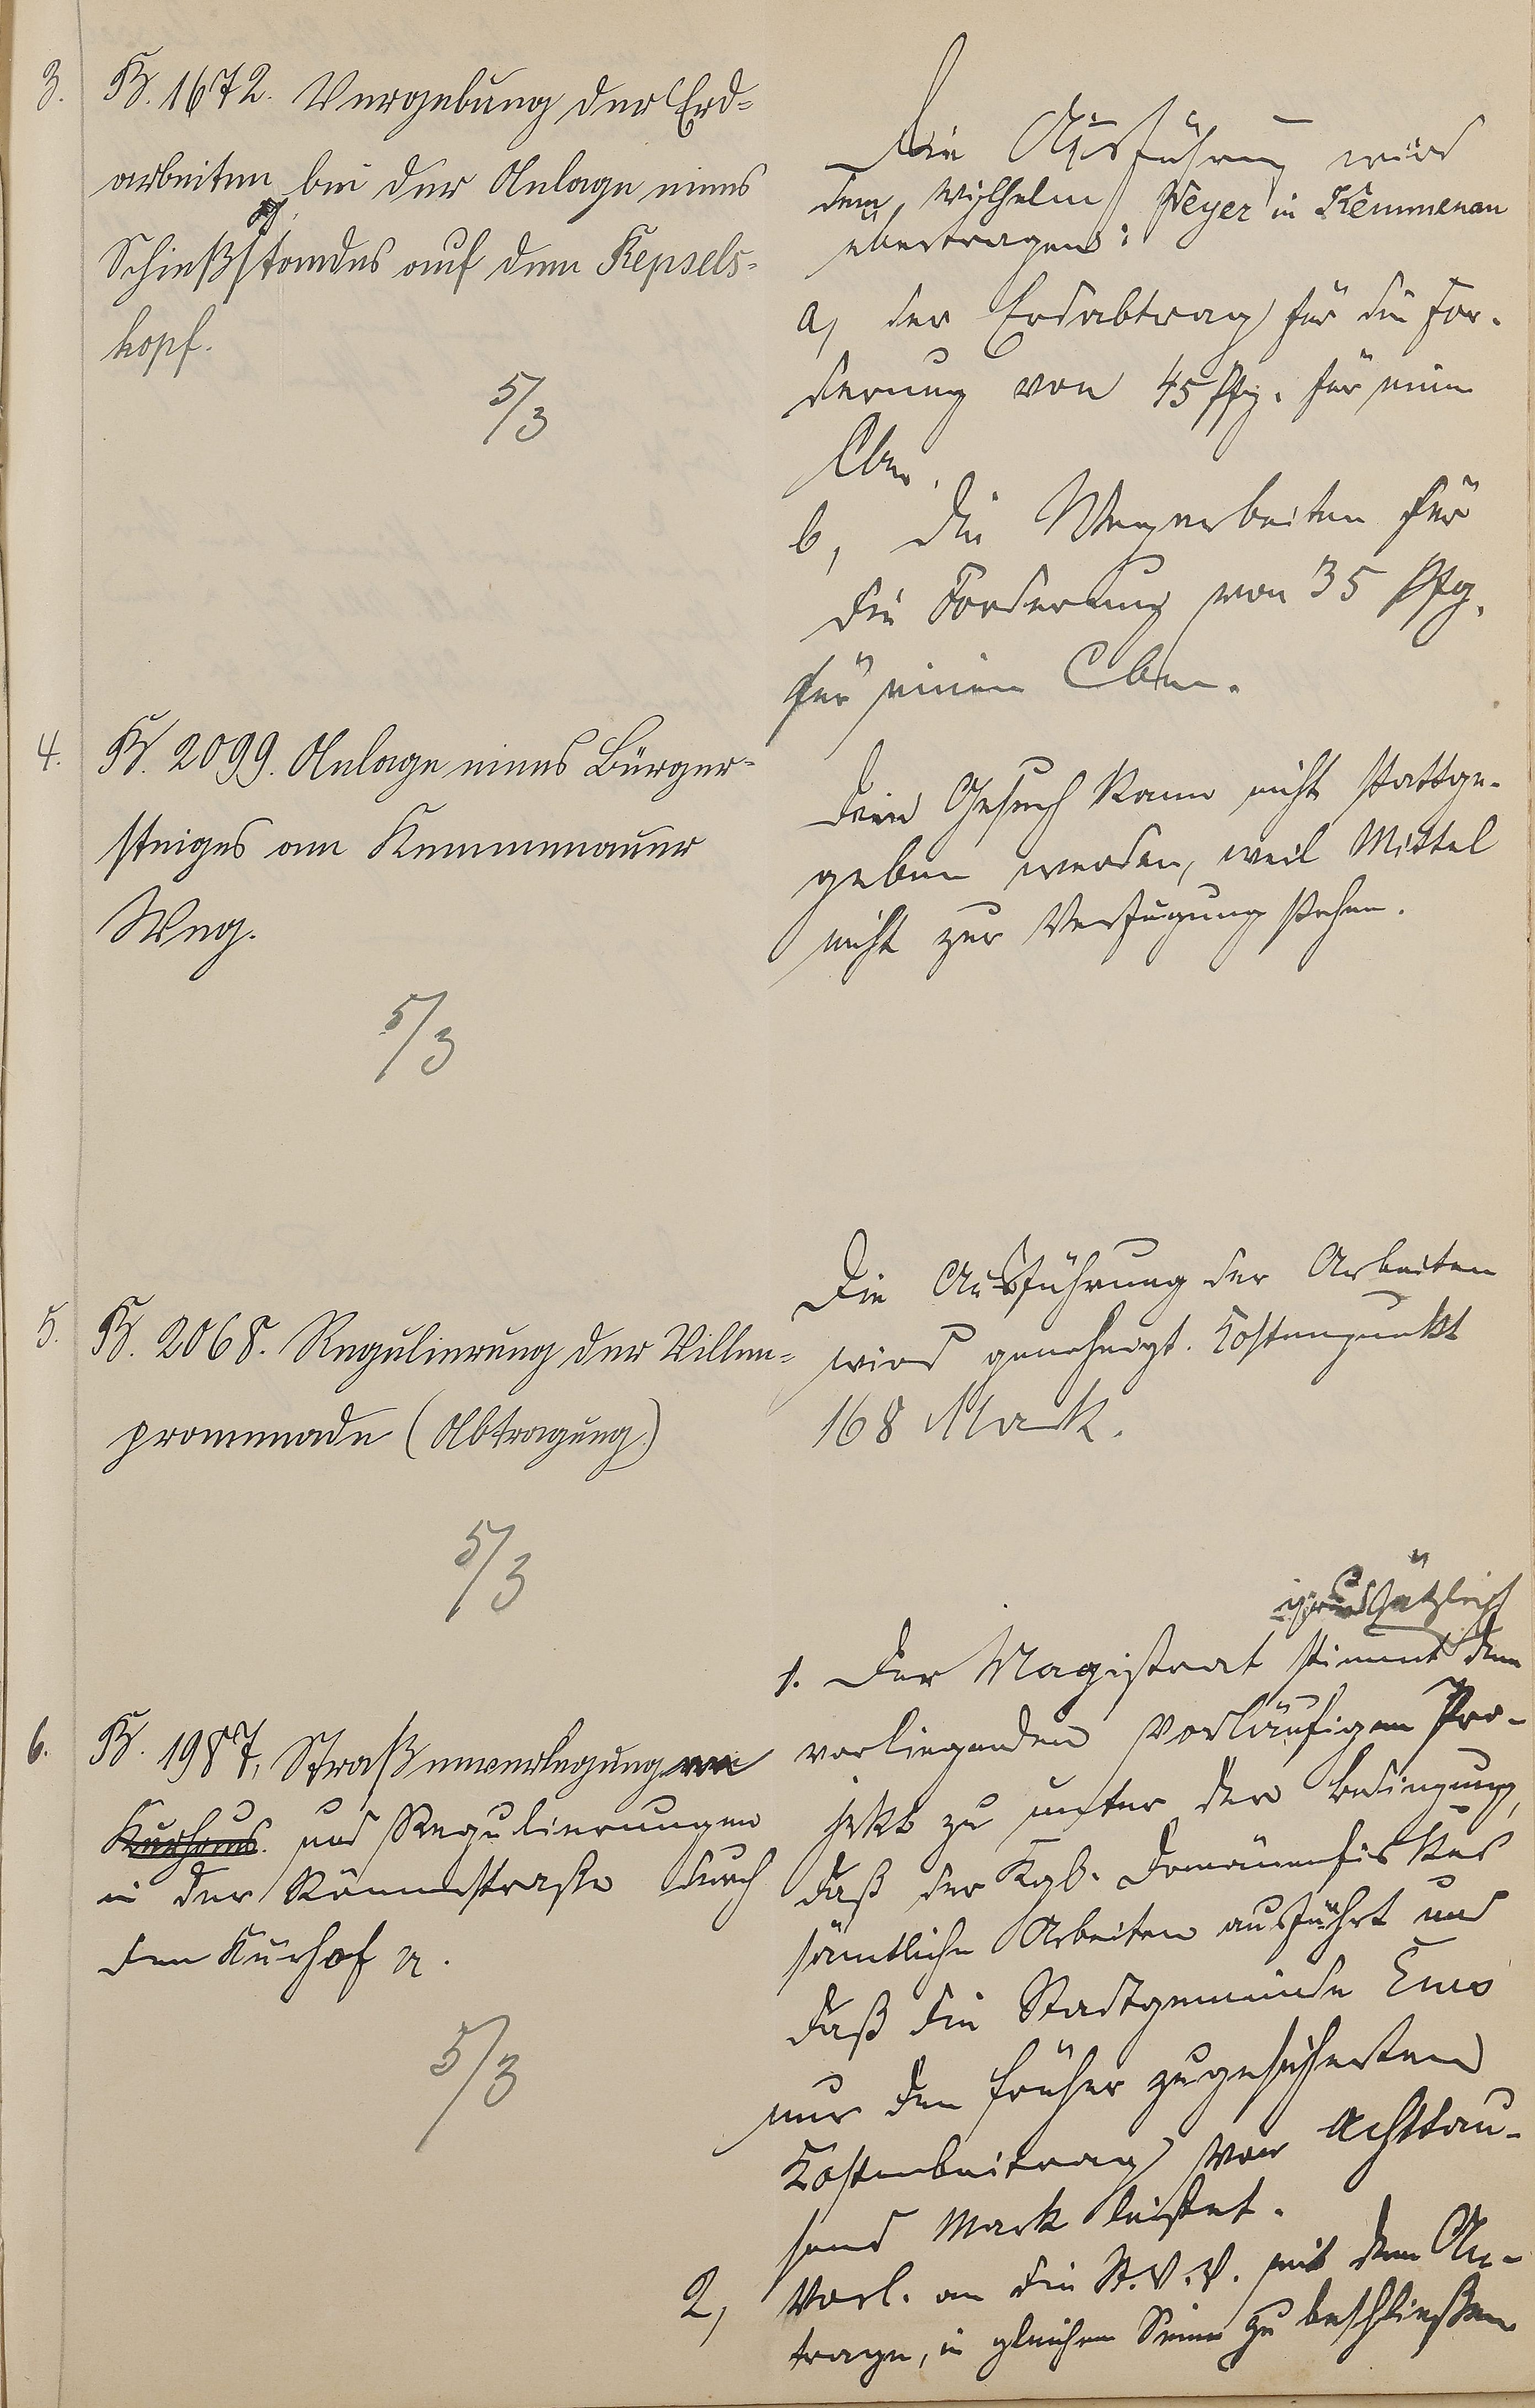 3. B. 1672. Vergebung der Erd-
arbeiten bei der Anlage eines
Schießstandes auf dem Kepsels-
kopf.
5/3
Die Ausführung wird
dem Wilhelm Meyer in Kemmenau
übertragen:
a, der Erdabtrag für die For-
derung von 45 Pfg. für einen
Cbm.
b, die Wegearbeiten für
die Forderung von 35 Pfg.
für einen Cbm.
4. B. 2099. Anlage eines Bürger-
steiges am Kemmenauer
Weg.
5/3
Dem Gesuch kann nicht stattge-
geben werden, weil Mittel
nicht zur Verfügung stehen.
5. B. 2068. Regulierung der Villen-
promenade (Abtragung)
5/3
Die Ausführung der Arbeiten
wird genehmigt. Kostenpunkt
168 Mark.
6. B. 1987, Straßenverlegung
Kurhaus. und Regulierungen
in der Römerstraße durch
den Kurhof
5/3
grundsätzlich
1. Der Magistrat stimmt dem
vorliegenden vorläufigen Pro-
jekt zu unter der Bedingung,
daß der Kgl. Domänenfiskus
sämtliche Arbeiten ausführt und
daß die Stadtgemeinde Ems
nur den früher zugesicherten
Kostenbeitrag von Achttau-
send Mark leistet.
2, Vorl. an die St. V. V. mit dem An-
trage, in gleichem Sinne zu beschließen